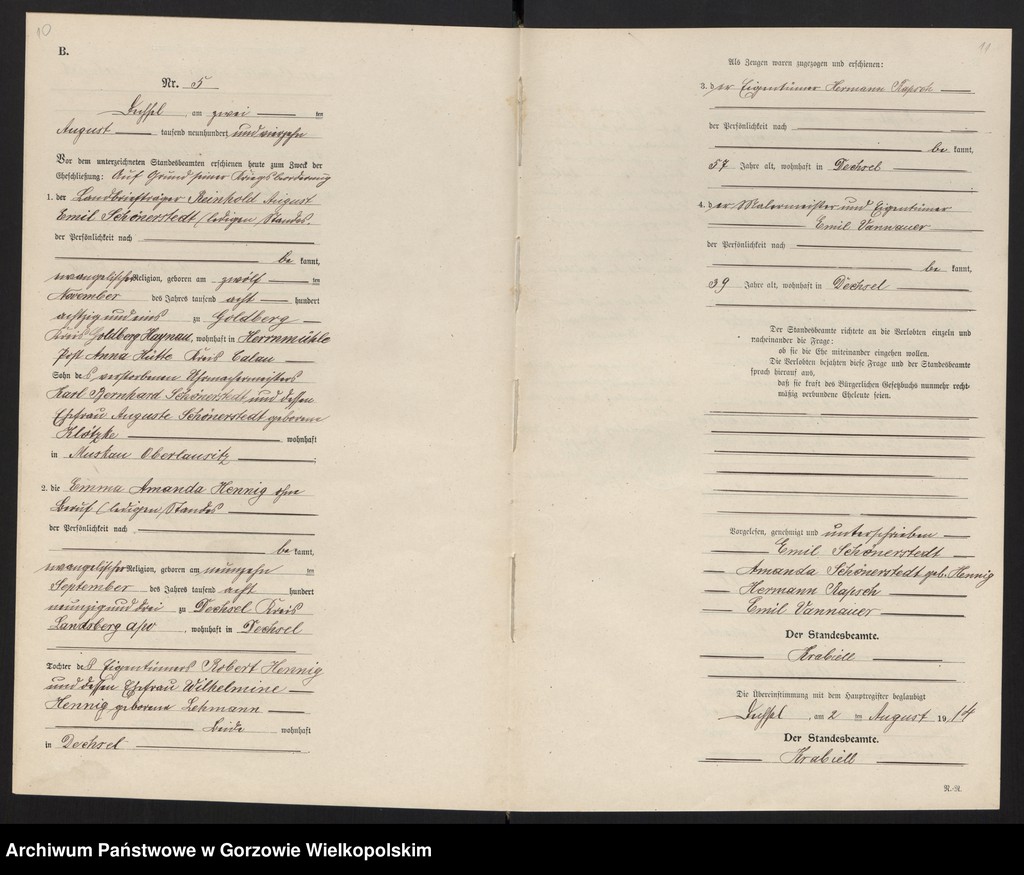 10
B.
Nr. 5
Dechsel, am zwei ten
August tausend neunhundert und vierzehn
Vor dem unterzeichneten Standesbeamten erschienen heute zum Zweck der
Eheschließung: Auf Grund seiner Kriegsbeorderung
1. der Landbriefträger Reinhold August
Emil Schönerstedt (ledigen Standes.
der Persönlichkeit nach
be kannt,
evangelischer Religion, geboren am zwölf ten
November des Jahres tausend acht hundert
achtzig und eins zu Goldberg
Kreis Goldberg Haynau, wohnhaft in Herrnmühle
Post Anna Hütte Kreis Calau
Sohn des verstorbenen Uhrmachermeisters
Karl Bernhard Schönerstedt und dessen
Ehefrau Auguste Schönerstedt geborene
Klötzke wohnhaft
in Muskau Oberlausitz
2. die Emma Amanda Hennig ohne
Beruf (ledigen Standes
der Persönlichkeit nach
be kannt,
evangelischer Religion, geboren am neunzehn ten
September des Jahres tausend acht hundert
neunzig und drei zu Dechsel Kreis
Landsberg a/W, wohnhaft in Dechsel
Tochter des Eigentümers Robert Hennig
und dessen Ehefrau Wilhelmine
Hennig geborene Lehmann
beide wohnhaft
in Dechsel
11
Als Zeugen waren zugezogen und erschienen:
3. der Eigentümer Hermann Rapsch
der Persönlichkeit nach
be kannt,
57 Jahre alt, wohnhaft in Dechsel
4. der Malermeister und Eigentümer
Emil Vannauer
der Persönlichkeit nach
be kannt,
39 Jahre alt, wohnhaft in Dechsel
Der Standesbeamte richtete an die Verlobten einzeln und
nacheinander die Frage:
ob sie die Ehe miteinander eingehen wollen.
Die Verlobten bejahten diese Frage und der Standesbeamte
sprach hierauf aus,
daß sie kraft des Bürgerlichen Gesetzbuchs nunmehr recht-
mäßig verbundene Eheleute seien.
Vorgelesen, genehmigt und unterschrieben
Emil Schönerstedt
Amanda Schönerstedt geb. Hennig
Hermann Rapsch
Emil Vannauer
Der Standesbeamte.
Krabiell
Die Übereinstimmung mit dem Hauptregister beglaubigt
Dechsel, am 2 ten August 1914
Der Standesbeamte.
Krabiell
N.-N.
Archiwum Państwowe w Gorzowie Wielkopolskim